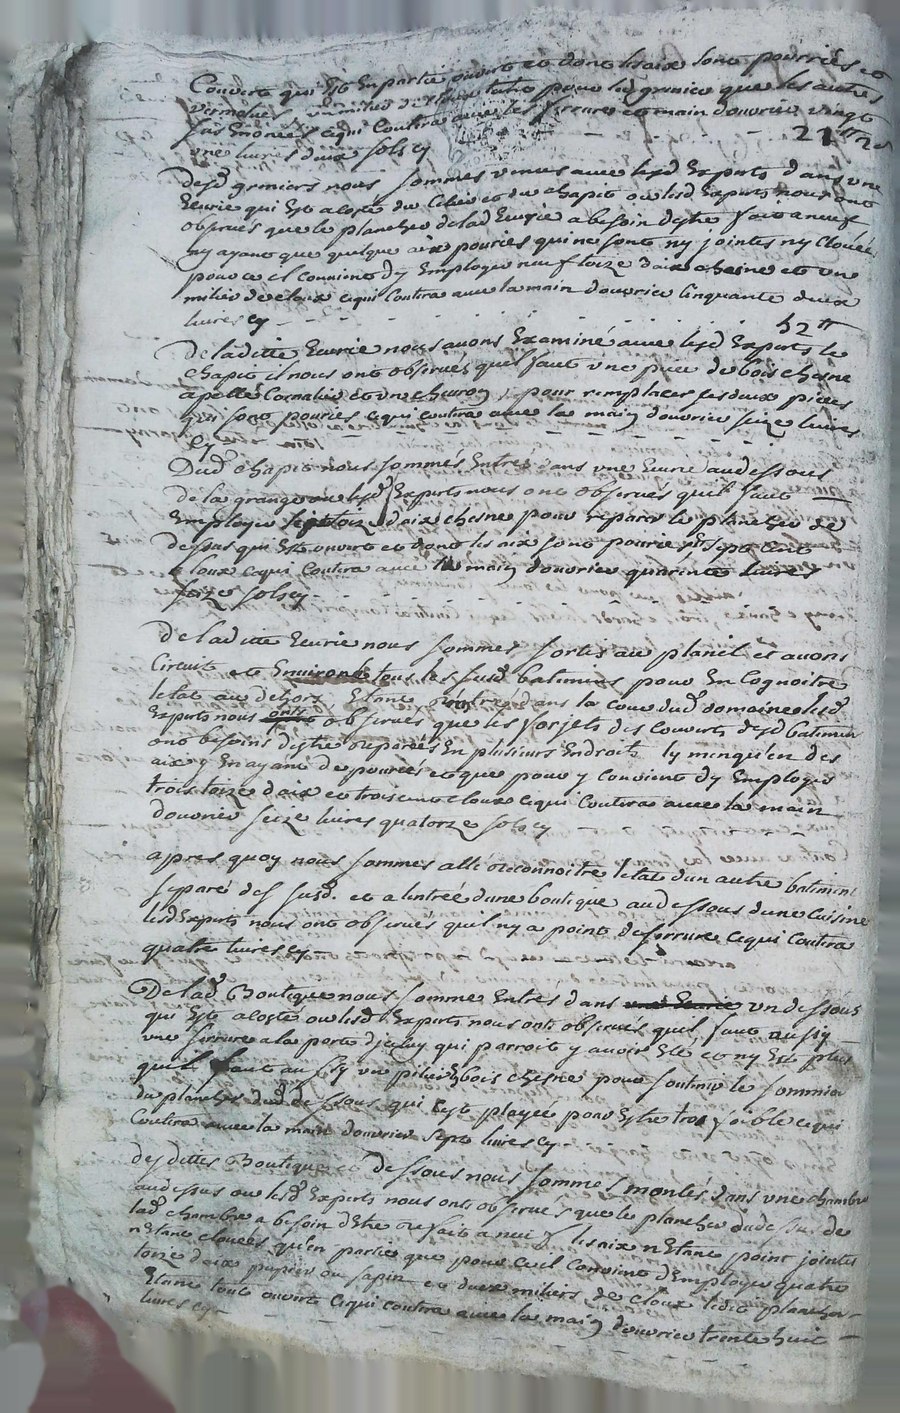 Couverte qui Est En partie ouverte et dont lesaix sont pourries et
vermolues de la grenier que les autres
sus Enoncés cequi Coutera avec les ferrures et main douvrier vingt
une livres deux sols cy 21ᵗᵗ 2ˢ
Desd greniers nous sommes venus avec lesd Experts dans une
Ecurie qui Est a losté du et du chapit ou lesd Experts nous ont
observés que le plancher de lad Ecurie a besoin destre fait a neuf
ny ayant que quelque aix pouries qui ne sont ny jointes ny Clouées
pour ce il convient dy Employer neuf toize daix chesne et un
milier de cloux cequi Coutera avec la main douvrier Cinquante deux
livres cy 52ᵗᵗ
De laditte Ecurie nous avons Examiné avec lesd Experts le
chapit il nous ont observés quil faut une piece de bois chesne
apellé Cornalier et un chevron pour remplacer ses deux pieces
qui sont pouries cequi coutera avec la main douvrier seize livres
cy
Dud chapit nous sommes Entres dans une Ecurie au dessous
de la grange ou lesd Experts nous ont observés quil faut
Employer sept toize daix chesne pour reparer le plancher de
dessus qui Est ouvert et dont les aix sont pourie et sept cent
cloux cequi Coutera avec la main douvrier quarante livres
seize sols cy
De laditte Ecurie nous sommes sortis au planil et avons
Circuit et Environé tous les susd batimens pour En Cognoitre
letat au dehors Etant dans la cour dud domaine lesd
Experts nous ont observés que les forjets des couverts desd batimen
ont besoins destre reparées En plusieurs Endroits des
aix y En ayant de pouriés et que pour y convient dy Employer
trois toize daix et trois cent cloux cequi Coutera avec la main
douvrier seize livres quatorze sols cy
apres quoy nous sommes allé reconnoitre letat dun autre batiment
separé des susd. et a lentrée dune boutique au dessous dune Cuisine
lesd Experts nous ont observés quil ny a point de serrure cequi Coutera
quatre livres cy
De lad Boutique nous somme Entres dans une Ecurie un dessous
qui Est a costé ou lesd Experts nous ont observés quil faut aussy
une serrure a la porte dicelluy qui parroit y avoir Eté et ny Est plus
quil faut aussy un pilier bois chesne pour soutenir le sommier
du plancher dud dessous qui Est playée pour Estre trop foible cequi
Coutera avec la main douvrier sept livres cy
desdittes Boutique et Dessous nous sommes montés dans une chambre
au dessus ou lesd Experts nous ont observés que le plancher du dessus de
lad chambre a besoin dEtre refait a neuf lesaix nEtant point jointes
nEtant clouées quen partie que pour ce il Convient dEmployer quatre
toize daix pupier ou sapin et deux miliers de cloux led plancher
Etant tout ouvert cequi coutera avec la main douvrier trente huit
livres cy